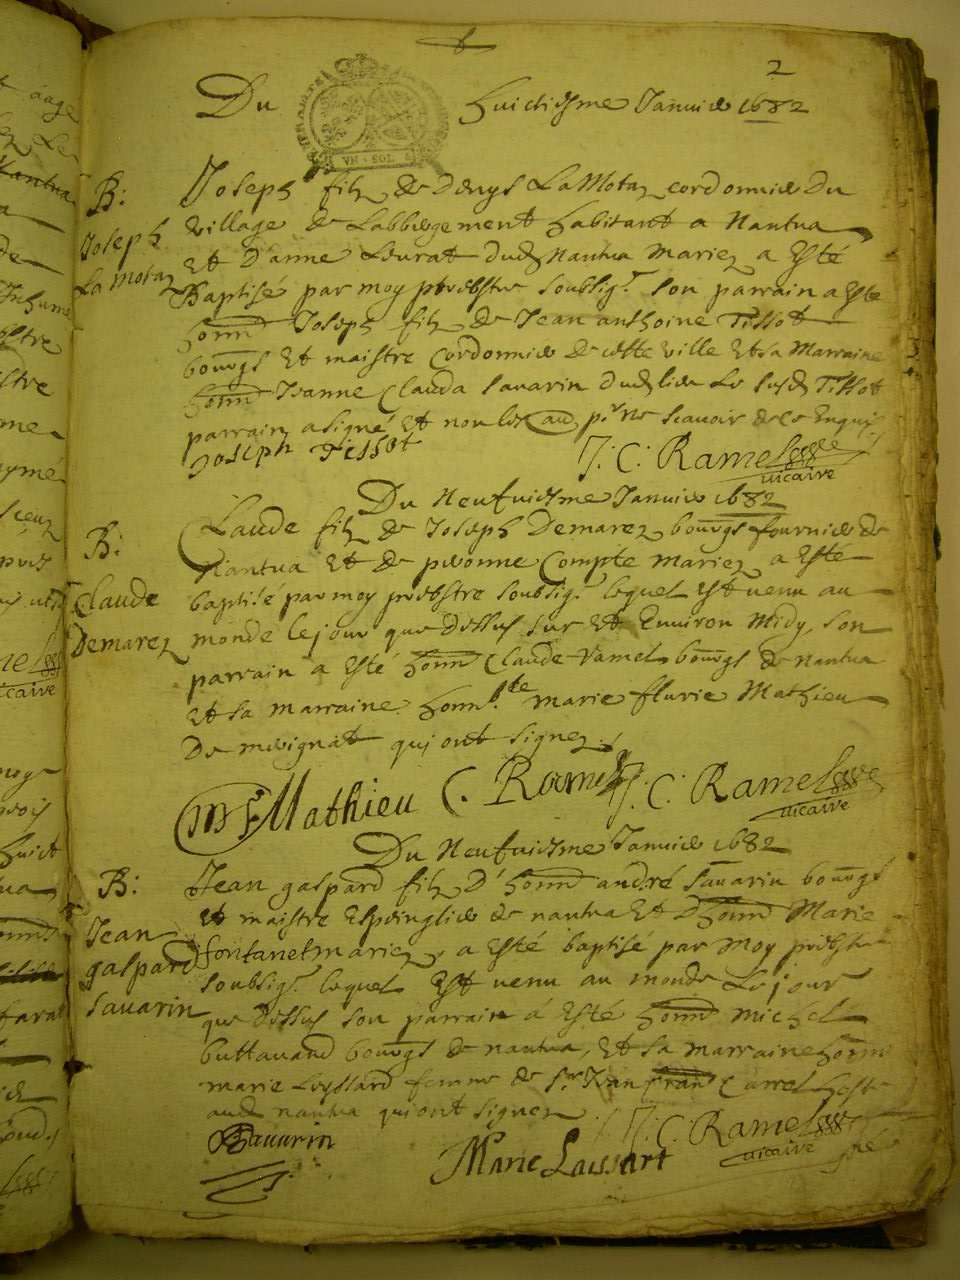 2
Du huictiesme Janvier 1682
VN · SOL
B:
Joseph
La Motaz
Joseph filz de Denys La Motaz cordonnier du
village de Labbergement habitant a Nantua
Et d'anne Leurat dud Nantua mariez a Esté
Baptisé par moy prebstre soubsig. son parrain a este
honn Joseph filz de Jean anthoine Tissot
bourgs Et maistre Cordonnier de ceste ville Et sa Marraine
honn Jeanne Clauda savarin dud lieu Le susd Tissot
parrain a signé Et non les au. pr ne scavoir de ce Enquis
Joseph Tissot
J. C. Ramel
vicaire
Du Neufviesme Janvier 1682
B:
Claude
Demarez
Claude filz de Joseph Demarez bourgs fournier de
Nantua Et de pernonne Compte mariez a Esté
baptisé par moy prebstre soubsig. lequel Est venu au
monde le jour que dessus sur Et Environ Midy, son
parrain a Esté honn Claude Ramel bourgs de nantua
Et sa marraine honn.ste marie flurie Mathieu
De merignat qui ont signez
m f Mathieu C. Ramel J. C. Ramel
vicaire
Du Neufviesme Janvier 1682
B:
Jean
gaspard
savarin
Jean gaspard filz D'honn andré savarin bourgs
Et maistre Espinglier de nantua Et D'honn Marie
fontanet mariez, a Esté baptisé par moy prebstre
soubsig. lequel Est venu au monde Le jour
que Dessus son parrain a Esté honn Michel
buttavand bourgs de nantua, Et sa marraine honn
marie Leyssard femme de Sr Jean Carrel hoste
aud nantua qui ont signez
Savarin
Marie Laissart
J. C. Ramel
vicaire